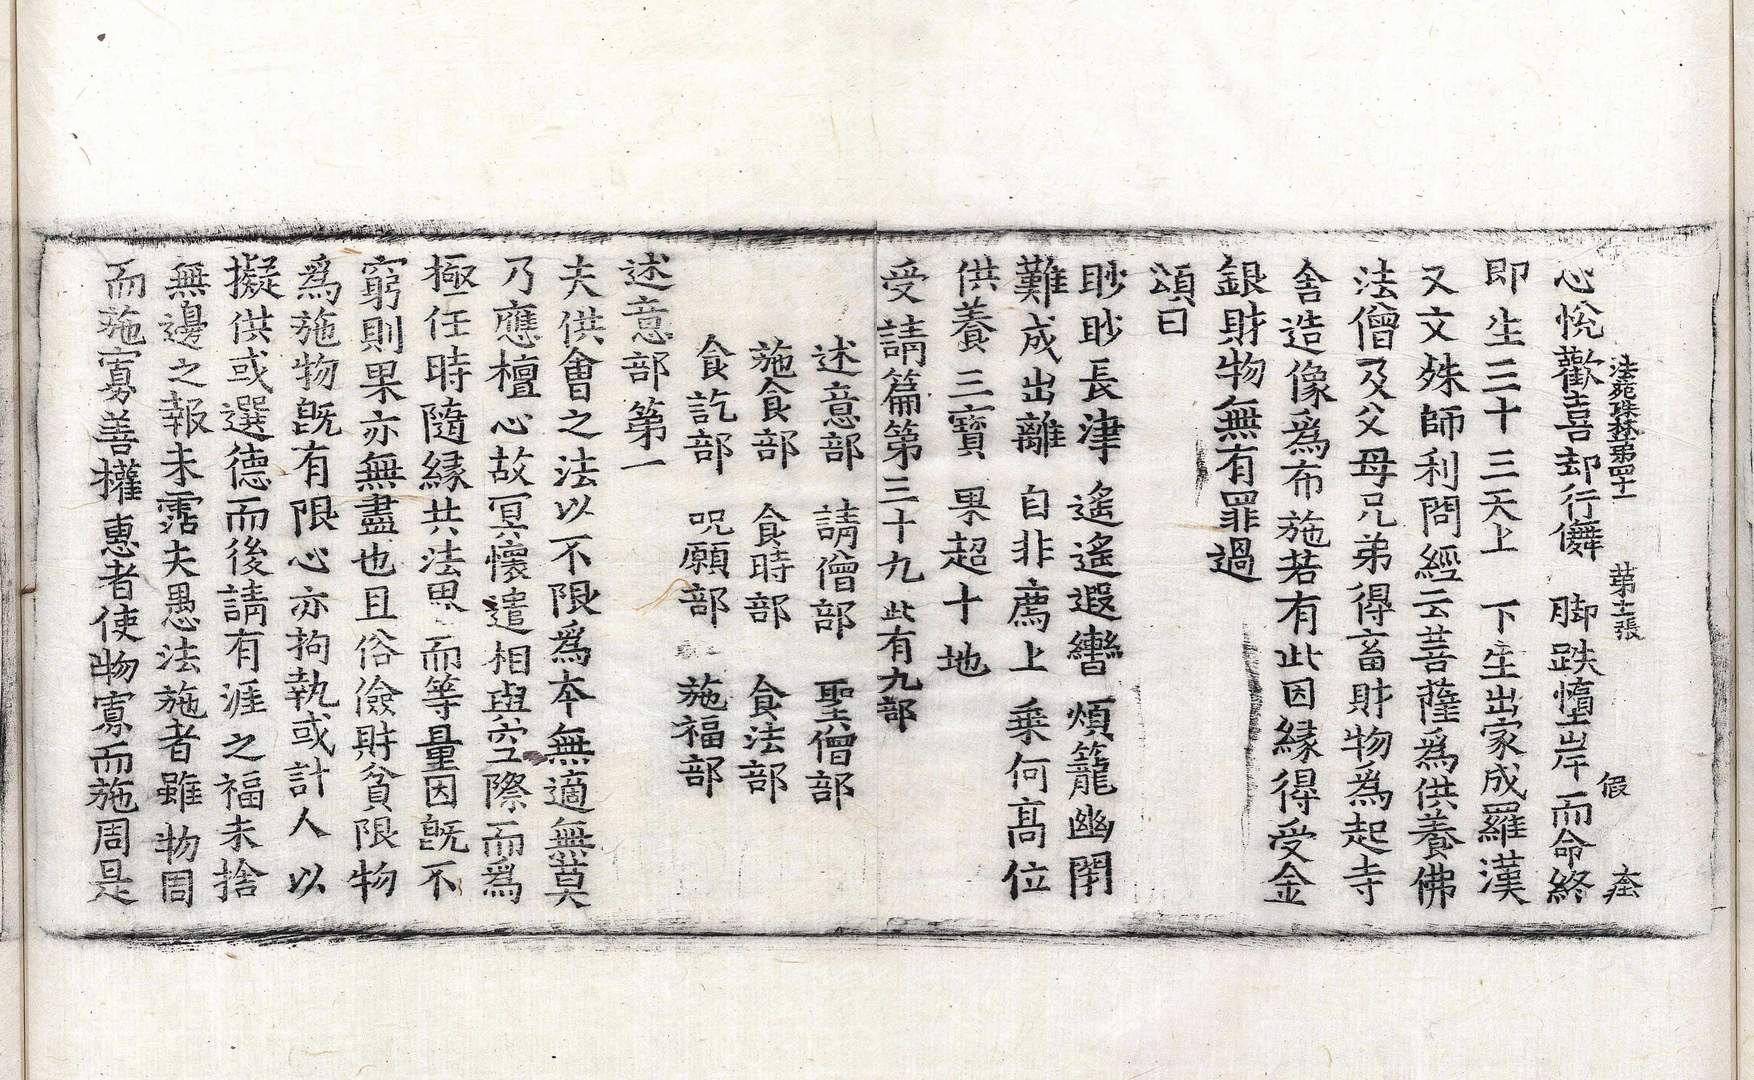 法苑珠林第四十一　第二張　假　𡉄
心悅歡喜却行儛　脚跌墮岸而命終
即生三十三天上　下生出家成羅漢
又文殊師利問經云菩薩爲供養佛
法僧及父母兄弟得畜財物爲起寺
舍造像爲布施若有此因緣得受金
銀財物無有罪過
頌曰
眇眇長津　遙遙遐轡　煩籠幽閉
難成出離　自非薦上　乘何高位
供養三寶　果超十地
受請篇第三十九　此有九部
述意部　請僧部　聖僧部
施食部　食時部　食法部
食訖部　呪願部　施福部
述意部第一
夫供會之法以不限爲本無適無莫
乃應檀心故冥懷遣相與空際而爲
極任時隨緣共法界而等量因旣不
窮則果亦無盡也且俗儉財貧限物
爲施物旣有限心亦拘執或計人以
擬供或選德而後請有涯之福未捨
無邊之報未霑夫愚法施者雖物周
而施寡善權惠者使物寡而施周是